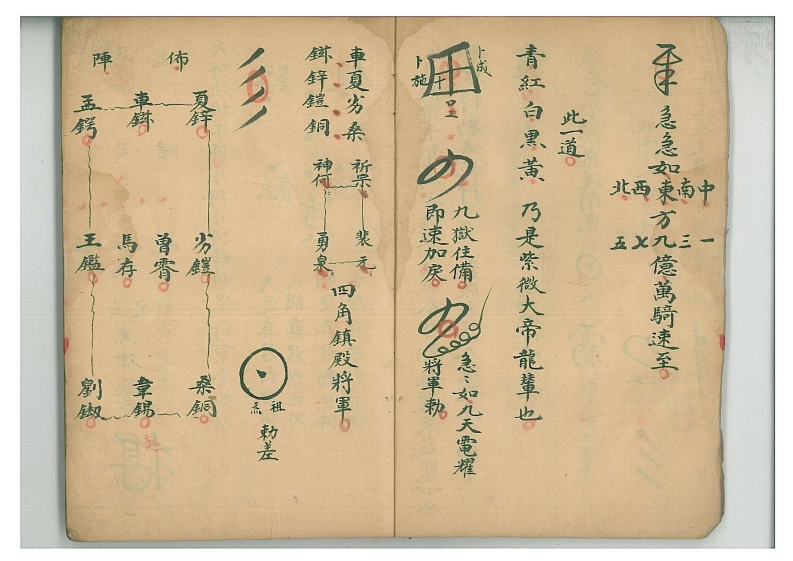 急急如東方九億萬騎速至
中南西北
一三七五
此一道
青紅白黑黃 乃是紫微大帝龍輦也
卜成
卜施
九獄住備
即速加戾
急々如九天電耀
將軍勅
車夏劣桑
鉌鋅鎧銅
祈杲 裴元
神何 勇泉
四角鎮殿將軍
祖
勅差
佈陣
夏鋅 劣鎧 桑銅
車鉌 曾霄 韋錫
馬存
孟鍔 王鑑 劉鏺